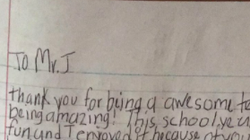 To Mr.J
thank you for being a awesome te
being amazing! This school ye
fun and I enjoyed it because of you